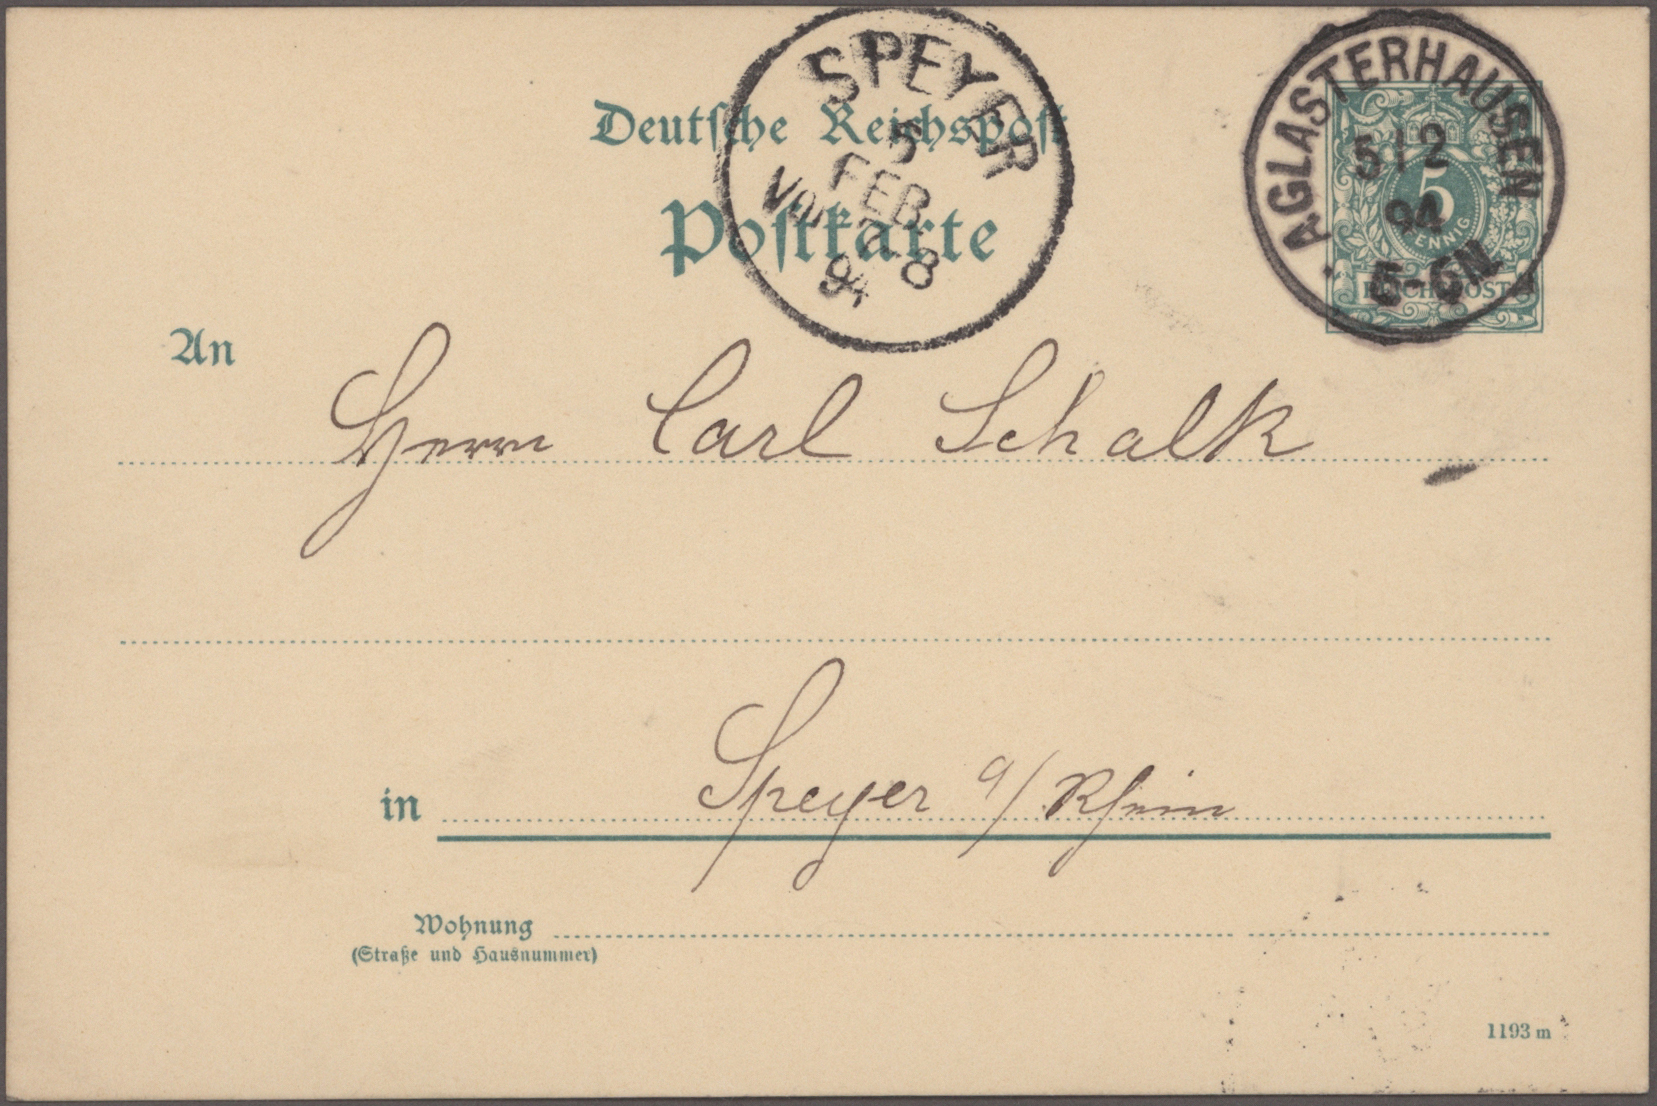 Deutsche Reichspost
Postkarte
SPEYER
5
FEB.
Vor 7-8
94
AGLASTERHAUSEN
5 | 2
94
5-6N
5
PFENNIG
REICHSPOST
An
Herrn Carl Schalk
in Speyer a/Rhein
Wohnung
(Straße und Hausnummer)
1193 m